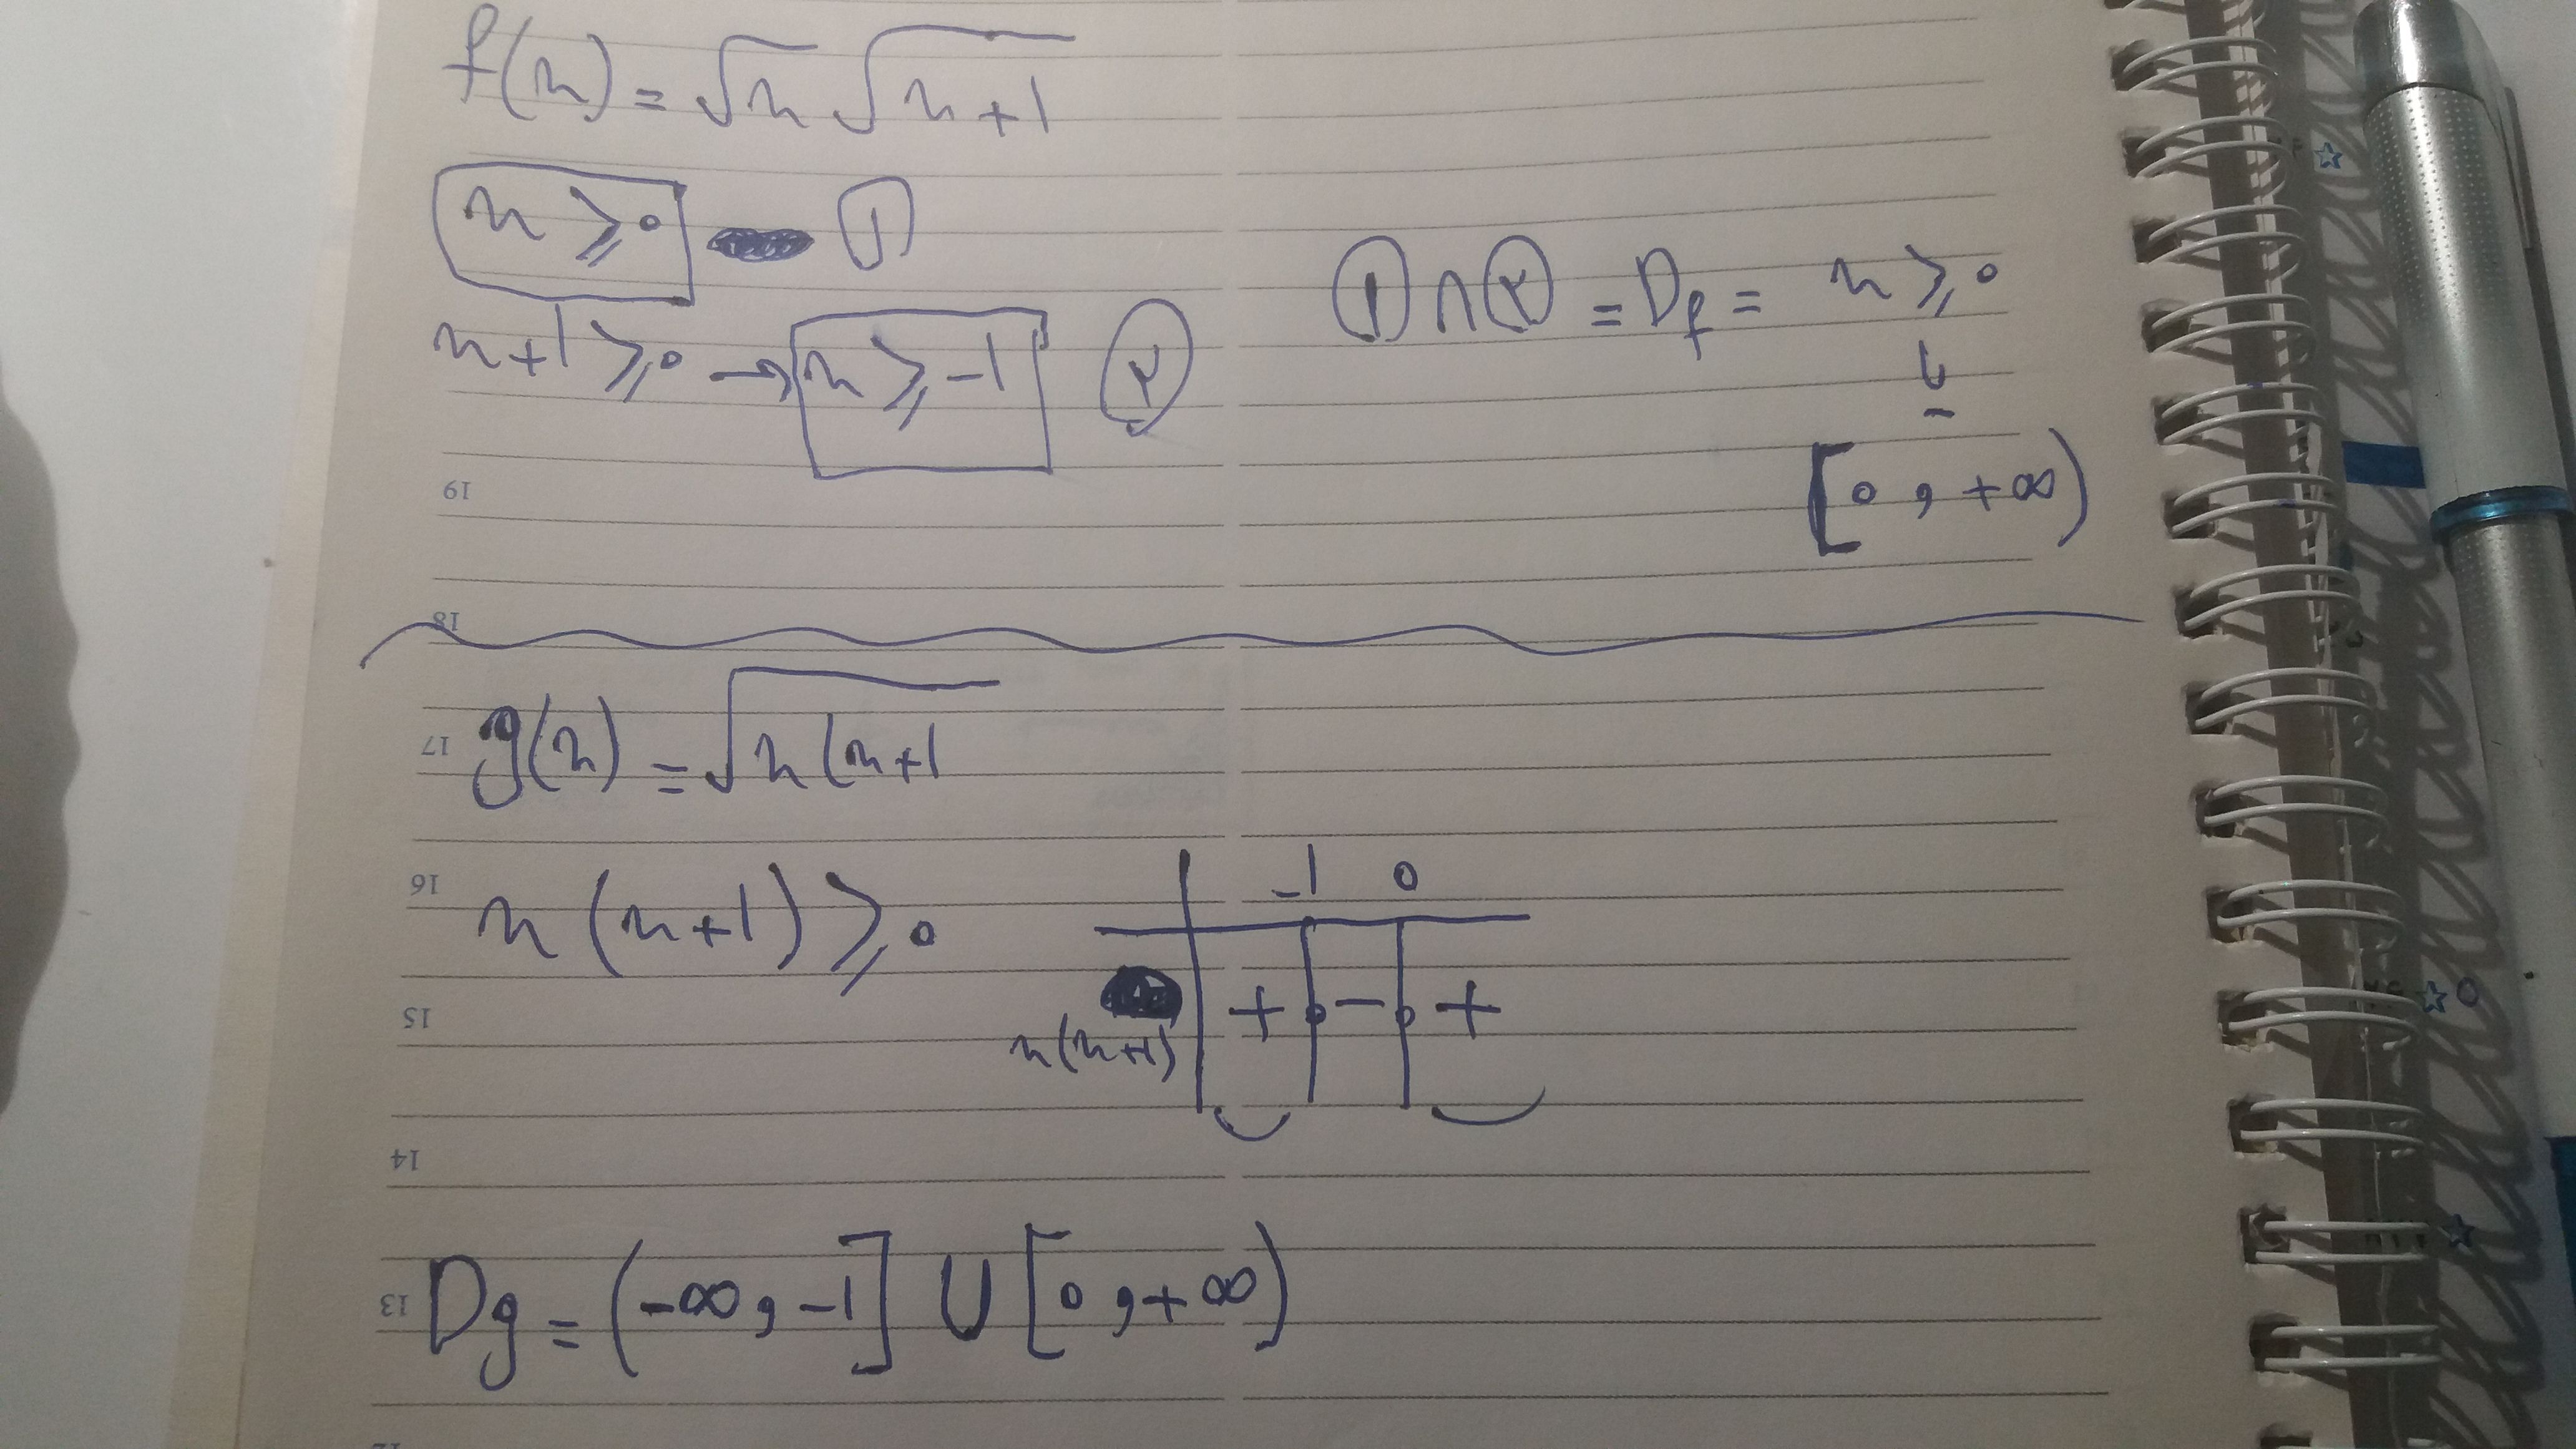 f(x) = √x √x+1
x ⩾ 0 ①
x+1 ⩾ 0 → x ⩾ -1 ۲
① ∩ ۲ = Df = x ⩾ 0
یا
[0 , +∞)
19
18
17 g(x) = √x(x+1
16 x(x+1) ⩾ 0
-1 0
x(x+1) + 0 - 0 +
15
14
13 Dg = (-∞ , -1] ∪ [0 , +∞)